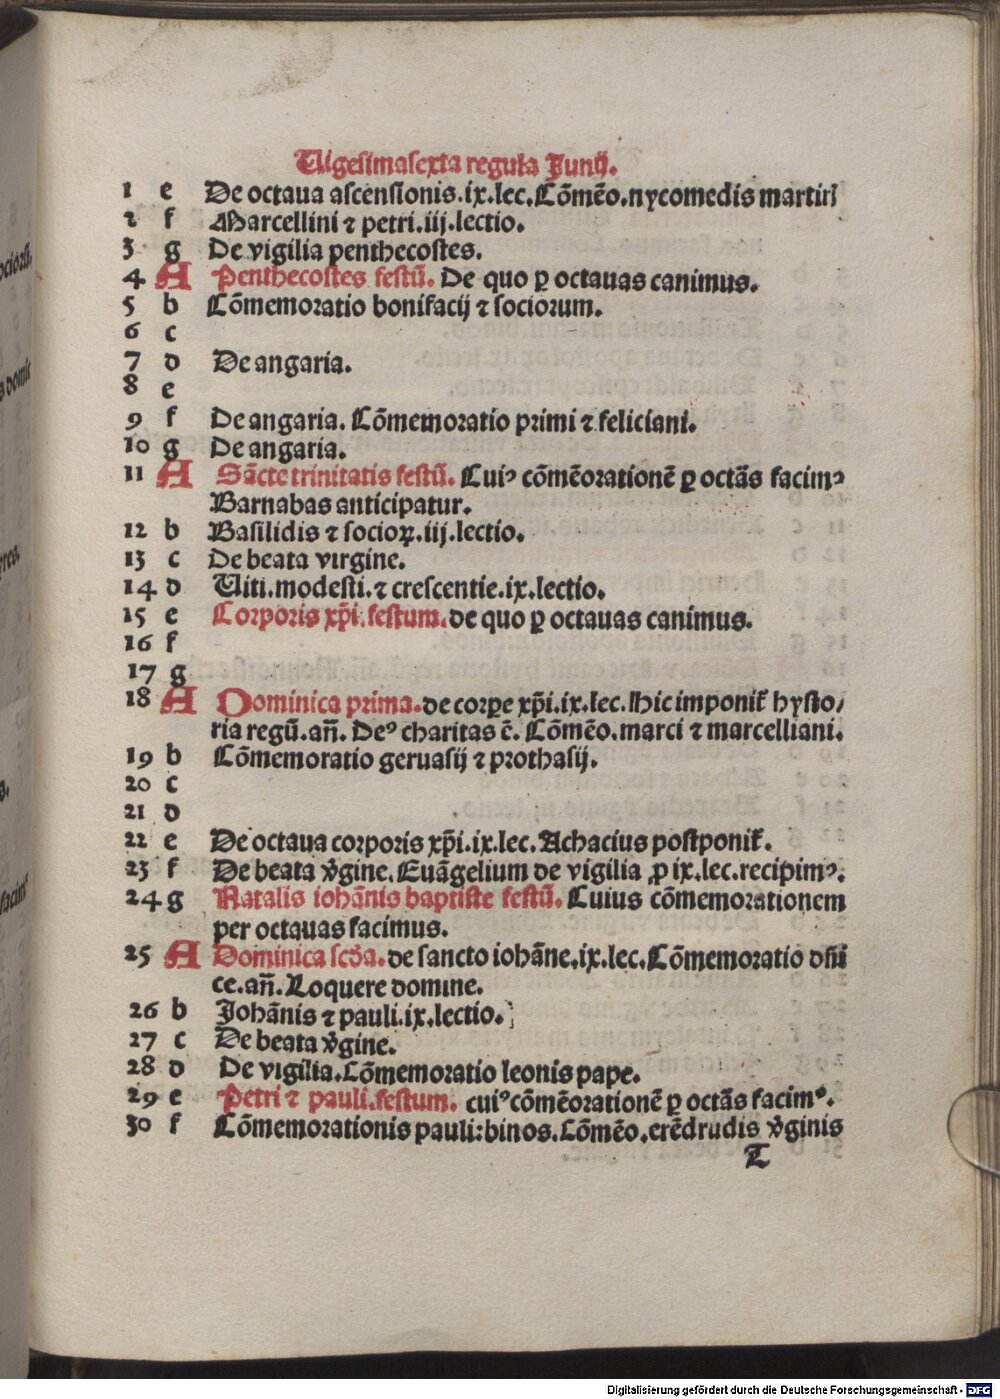 Uigesimasexta regula Junij.
1 e De octaua ascensionis.ix.lec.Cōmēo.nycomedis martiri
2 f Marcellini ⁊ petri.iij.lectio.
3 g De vigilia penthecostes.
4 A Penthecostes festū. De quo ꝑ octauas canimus.
5 b Cōmemoratio bonifacij ⁊ sociorum.
6 c
7 d De angaria.
8 e
9 f De angaria. Cōmemoratio primi ⁊ feliciani.
10 g De angaria.
11 A Sācte trinitatis festū. Cuiꝰ cōmēorationē ꝑ octās facimꝰ
Barnabas anticipatur.
12 b Basilidis ⁊ socioꝝ.iij.lectio.
13 c De beata virgine.
14 d Uiti.modesti.⁊ crescentie.ix.lectio.
15 e Corporis xp̄i.festum.de quo ꝑ octauas canimus.
16 f
17 g
18 A Dominica prima.de corꝑe xp̄i.ix.lec.Hic imponit᷑ hysto/
ria regū.an̄. Deꝰ charitas ē. Cōmēo.marci ⁊ marcelliani.
19 b Cōmemoratio geruasij ⁊ prothasij.
20 c
21 d
22 e De octaua corporis xp̄i.ix.lec.Achacius postponit᷑.
23 f De beata v̓gine. Euāgelium de vigilia ꝓ ix.lec.recipimꝰ.
24 g Natalis iohānis baptiste festū. Cuius cōmemorationem
per octauas facimus.
25 A Dominica scd̓a.de sancto iohāne.ix.lec.Cōmemoratio dn̄i
ce.an̄.Loquere domine.
26 b Johānis ⁊ pauli.ix.lectio.
27 c De beata v̓gine.
28 d De vigilia.Cōmemoratio leonis pape.
29 e Petri ⁊ pauli.festum. cuiꝰcōmēorationē ꝑ octās facimꝰ.
30 f Cōmemorationis pauli:binos.Cōmēo.erēdrudis v̓ginis
T
Digitalisierung gefördert durch die Deutsche Forschungsgemeinschaft - DFG